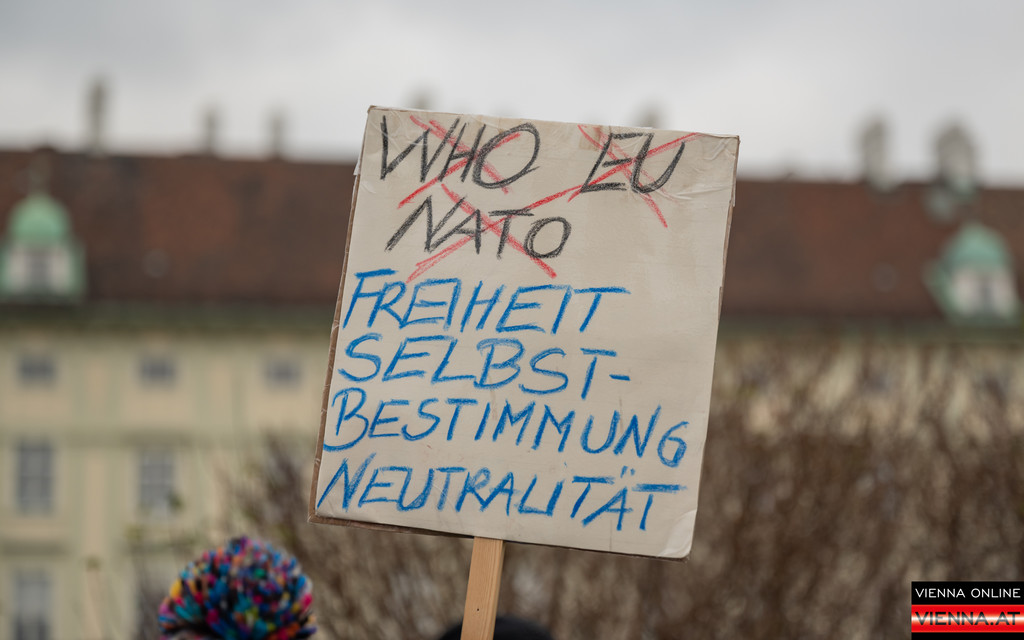 WHO EU
NATO
FREIHEIT
SELBST-
BESTIMMUNG
NEUTRALITÄT
VIENNA ONLINE
VIENNA.AT